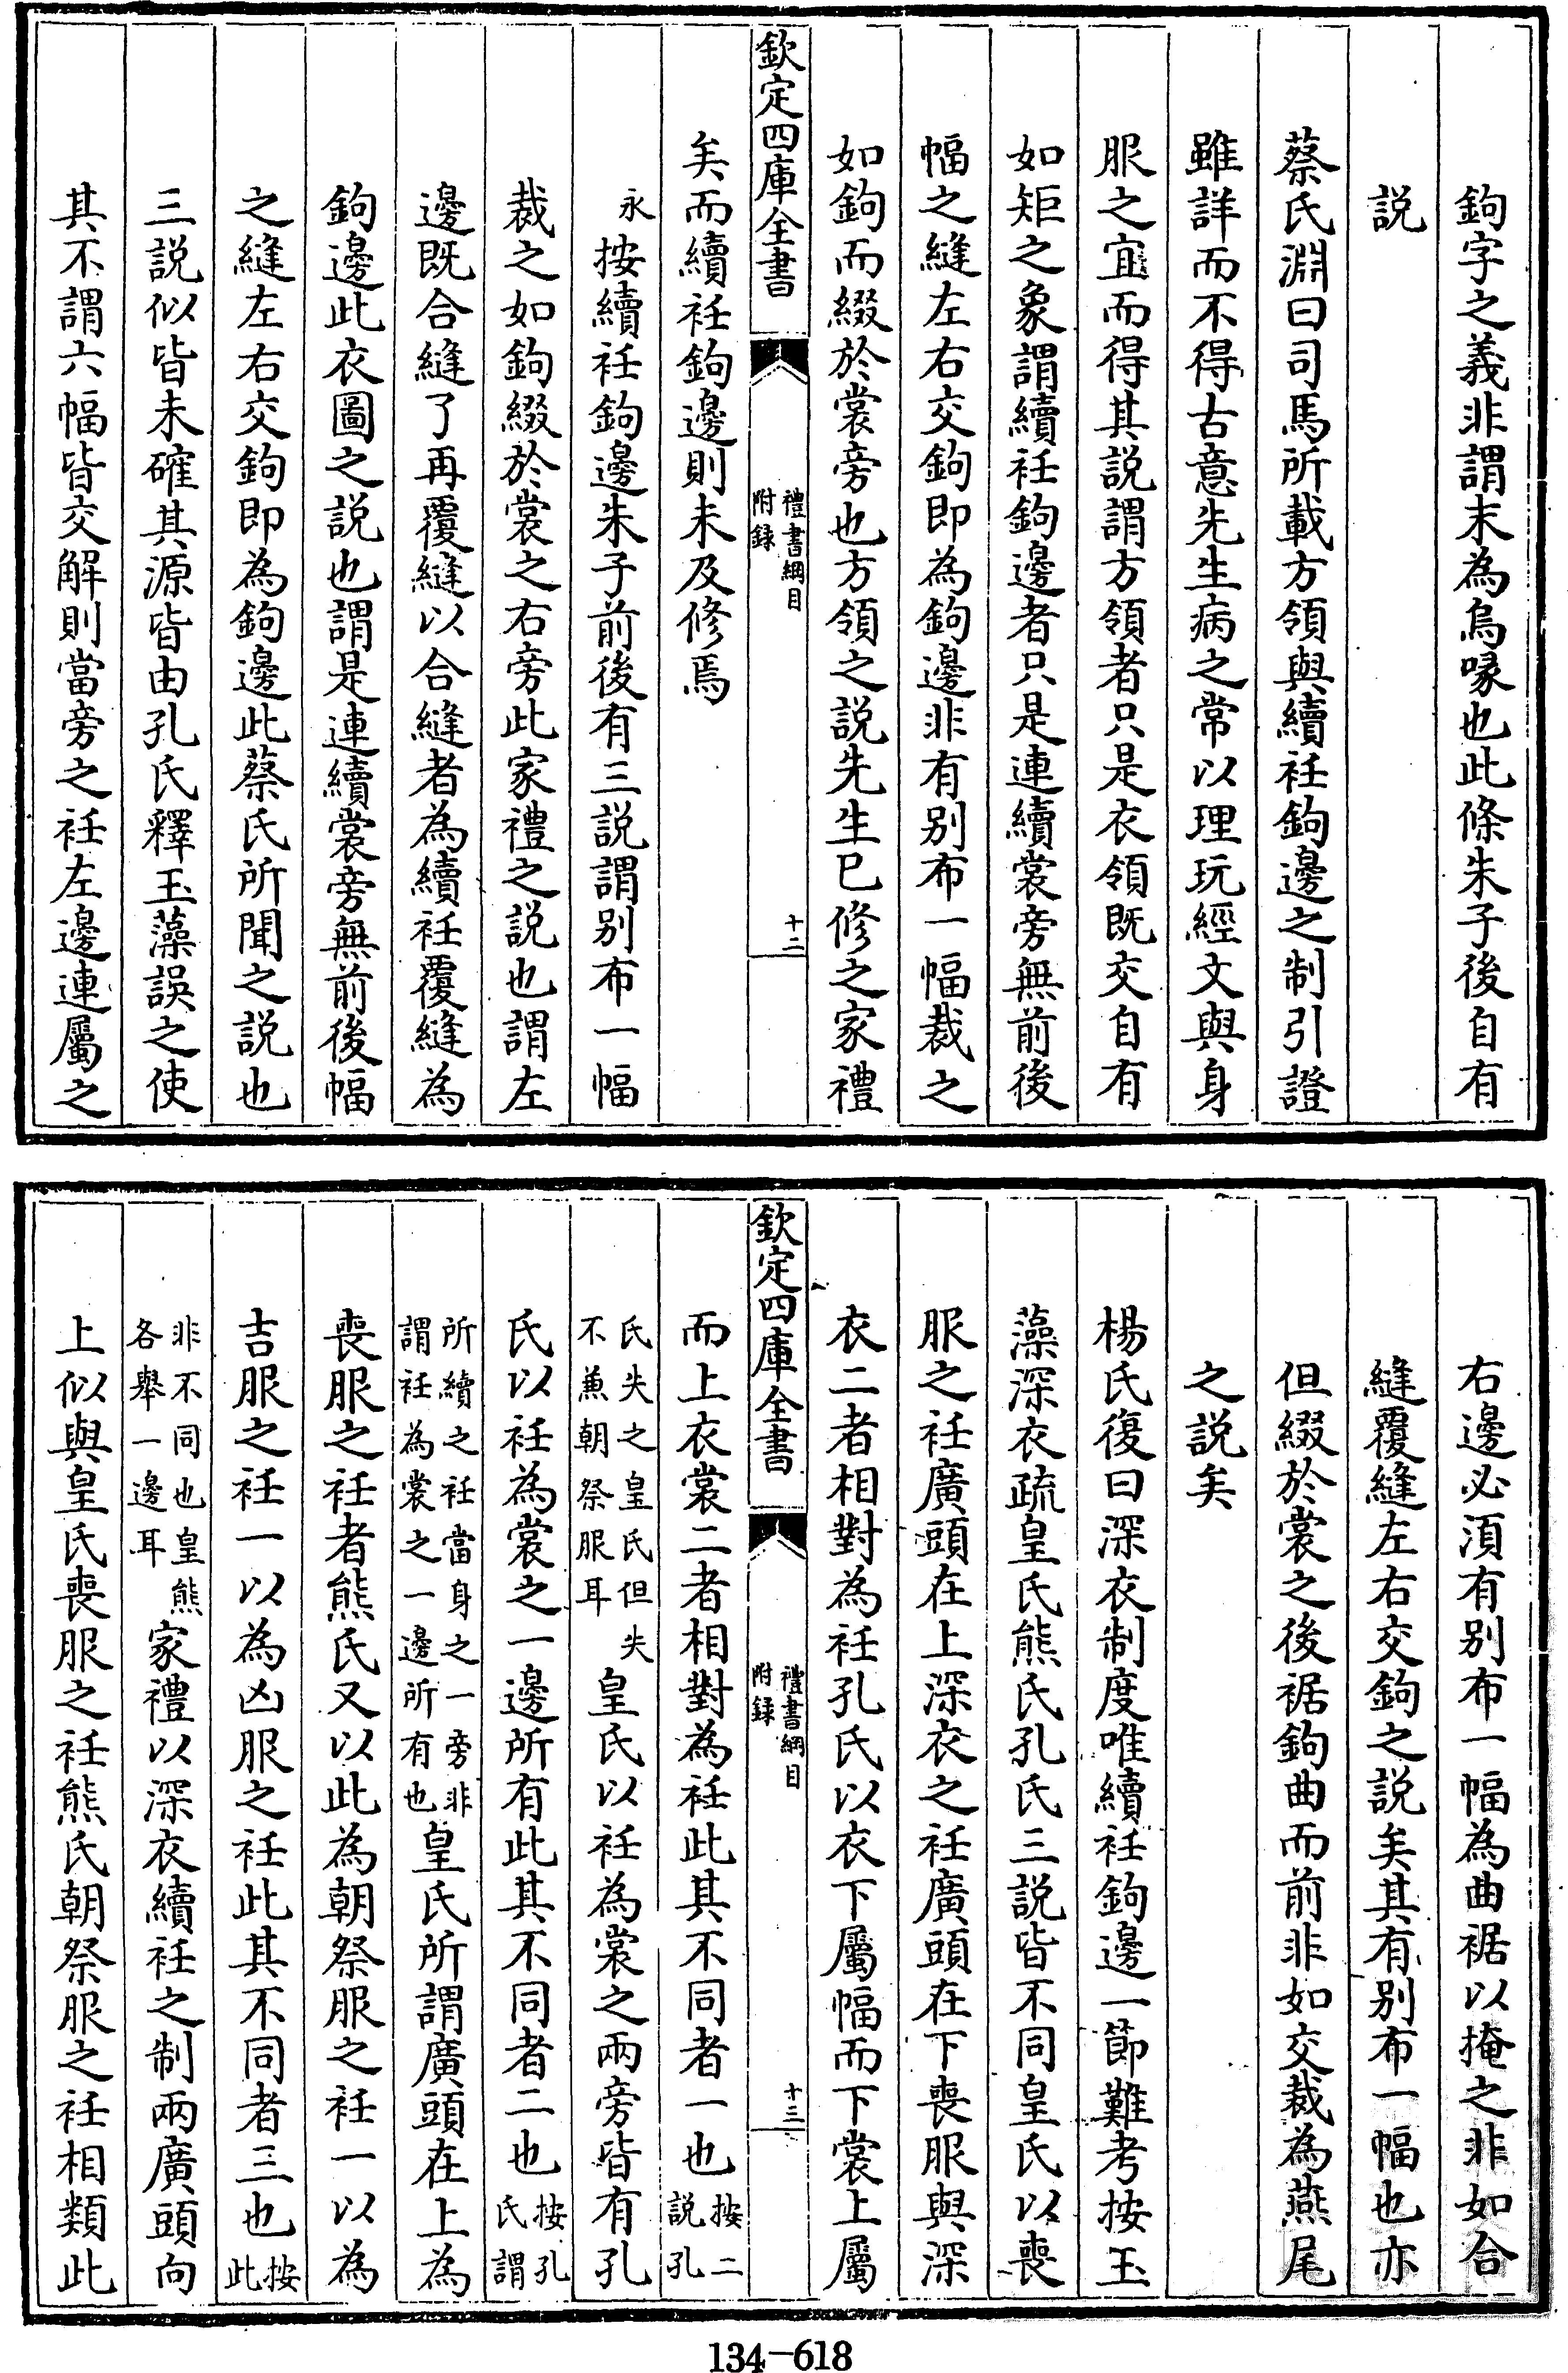 鉤字之義非謂末為烏喙也此條朱子後自有
説
蔡氏淵曰司馬所載方領與續衽鉤邊之制引證
雖詳而不得古意先生病之常以理玩經文與身
服之宜而得其説謂方領者只是衣領既交自有
如矩之象謂續衽鉤邊者只是連續裳旁無前後
幅之縫左右交鉤即為鉤邊非有别布一幅裁之
如鉤而綴於裳旁也方領之説先生已修之家禮
欽定四庫全書
禮書綱目
附録
十二
矣而續衽鉤邊則未及修焉
永按續衽鉤邊朱子前後有三説謂别布一幅
裁之如鉤綴於裳之右旁此家禮之説也謂左
邊既合縫了再覆縫以合縫者為續衽覆縫為
鉤邊此衣圖之説也謂是連續裳旁無前後幅
之縫左右交鉤即為鉤邊此蔡氏所聞之説也
三説似皆未確其源皆由孔氏釋玉藻誤之使
其不謂六幅皆交解則當旁之衽左邊連屬之
右邊必須有别布一幅為曲裾以掩之非如合
縫覆縫左右交鉤之説矣其有别布一幅也亦
但綴於裳之後裾鉤曲而前非如交裁為燕尾
之説矣
楊氏復曰深衣制度唯續衽鉤邊一節難考按玉
藻深衣疏皇氏熊氏孔氏三説皆不同皇氏以喪
服之衽廣頭在上深衣之衽廣頭在下喪服與深
衣二者相對為衽孔氏以衣下屬幅而下裳上屬
欽定四庫全書
禮書綱目
附録
十三
而上衣裳二者相對為衽此其不同者一也按二
説孔
氏失之皇氏但失
不兼朝祭服耳
皇氏以衽為裳之兩旁皆有孔
氏以衽為裳之一邊所有此其不同者二也按孔
氏謂
所續之衽當身之一旁非
謂衽為裳之一邊所有也
皇氏所謂廣頭在上為
喪服之衽者熊氏又以此為朝祭服之衽一以為
吉服之衽一以為凶服之衽此其不同者三也按
此
非不同也皇熊
各舉一邊耳
家禮以深衣續衽之制兩廣頭向
上似與皇氏喪服之衽熊氏朝祭服之衽相類此
134-618